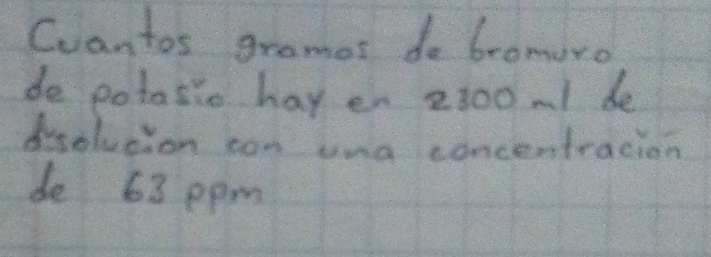 Cuantos gramos de bromuro
de potasio hay en 2300 ml de
disolucion con una concentracion
de 63 ppm